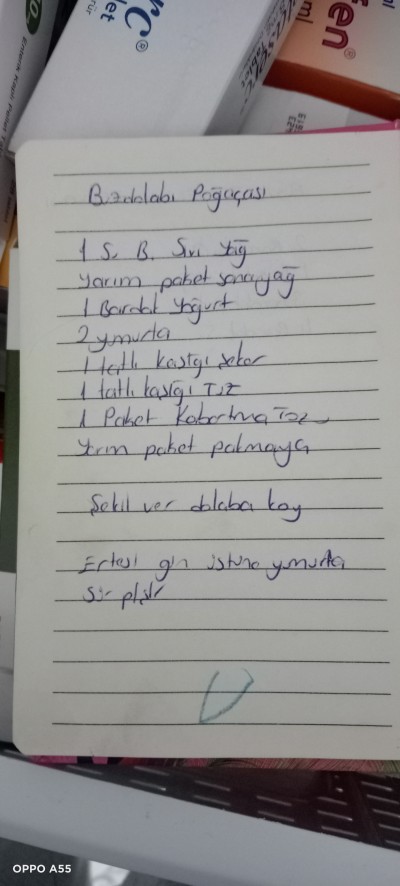 Bzdolabı Poğaçası
1 S. B. Sıvı Yağ
Yarım paket sanayağ
1 Bardak Yoğurt
2 yumurta
1 tatlı kaşığı şeker
1 tatlı kaşığı Tuz
1 Paket Kabartma Toz
Yarım paket pakmaya
Şekil ver dolaba koy
Ertesi gün üstüne yumurta
Sür pişir
OPPO A55